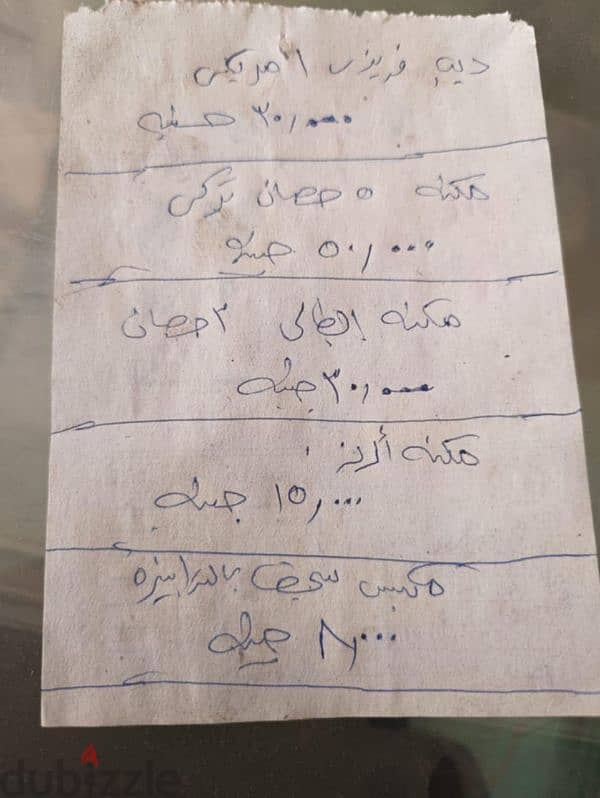 ديب فريزر امريكى
٣٠,٠٠٠ جنيه
مكنه ٥ حصان تركى
٥٠,٠٠٠ جنيه
مكنه ايطالى ٣ حصان
٣٠,٠٠٠ جنيه
مكنه أرز
١٥,٠٠٠ جنيه
مكبس بالترابيزه
٨٠٠٠ جنيه
dubizzle